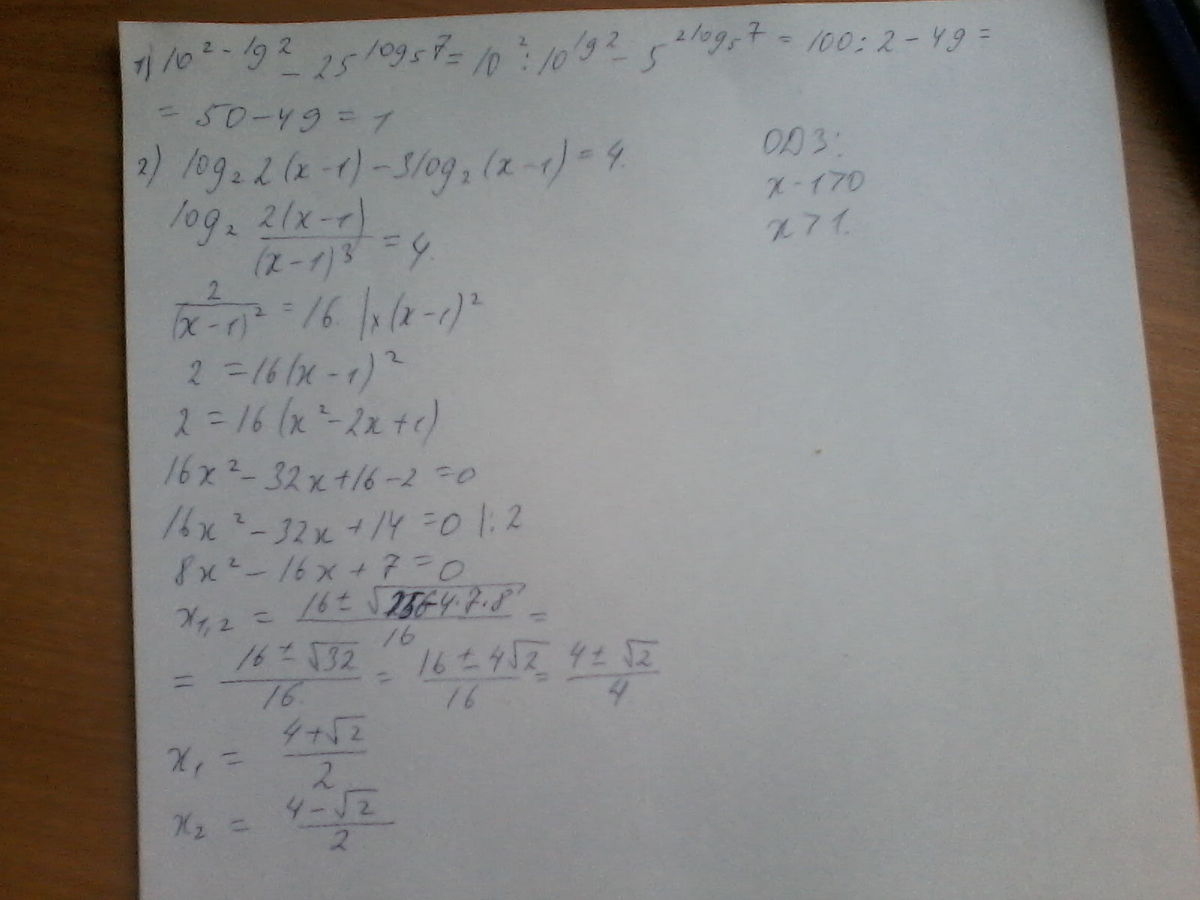 1) 10^(2-lg2) - 25^(log₅7) = 10² : 10^(lg2) - 5^(2log₅7) = 100 : 2 - 49 =
= 50 - 49 = 1
2) log₂ 2(x-1) - 3log₂(x-1) = 4.
ОДЗ:
x-1>0
x>1.
log₂ 2(x-1)/(x-1)³ = 4.
2/(x-1)² = 16. |x(x-1)²
2 = 16(x-1)²
2 = 16(x²-2x+1)
16x² - 32x + 16 - 2 = 0
16x² - 32x + 14 = 0 |:2
8x² - 16x + 7 = 0
x₁,₂ = (16 ± √(256-4·7·8))/16 =
= (16 ± √32)/16. = (16 ± 4√2)/16 = (4 ± √2)/4.
x₁ = (4+√2)/2
x₂ = (4-√2)/2